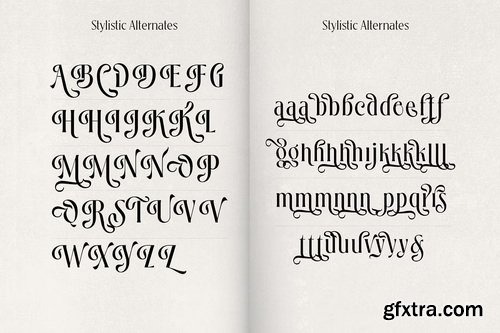 Stylistic Alternates
ABCDEFG
HHIJKKL
MMNNOP
QRSTUVV
WXYZL
Stylistic Alternates
aaabbbcddeeftf
gghhhhijkkklll
mmmnnn ppqrs
tttduuvyyy&
gfxtra.com